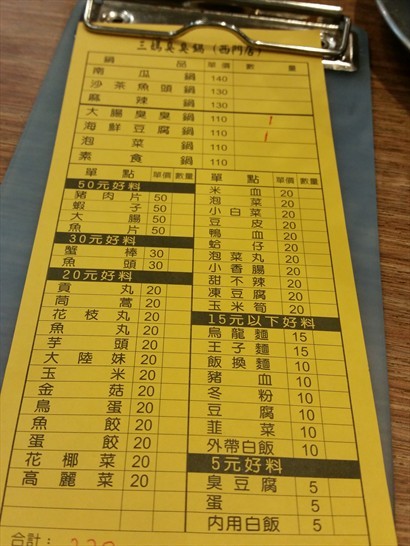 三媽臭臭鍋(西門店)
鍋 品 單價 數 量
南瓜鍋 140
沙茶魚頭鍋 130
麻辣鍋 130
大腸臭臭鍋 110 1
海鮮豆腐鍋 110 1
泡菜鍋 110
素食鍋 110
單 點 單價 數量
50元好料
豬肉片 50
蝦子 50
大腸 50
魚片 50
30元好料
蟹棒 30
魚頭 30
20元好料
貢丸 20
茼蒿 20
花枝丸 20
魚丸 20
芋頭 20
大陸妹 20
玉米 20
金菇 20
鳥蛋 20
魚餃 20
蛋餃 20
花椰菜 20
高麗菜 20
合計:
單 點 單價 數量
米血 20
泡菜 20
小白菜 20
豆皮 20
鴨血 20
蛤仔 20
泡菜丸 20
小香腸 20
甜不辣 20
凍豆腐 20
玉米筍 20
15元以下好料
烏龍麵 15
王子麵 15
飯換麵 10
豬血 10
冬粉 10
豆腐 10
韭菜 10
外帶白飯 10
5元好料
臭豆腐 5
蛋 5
內用白飯 5